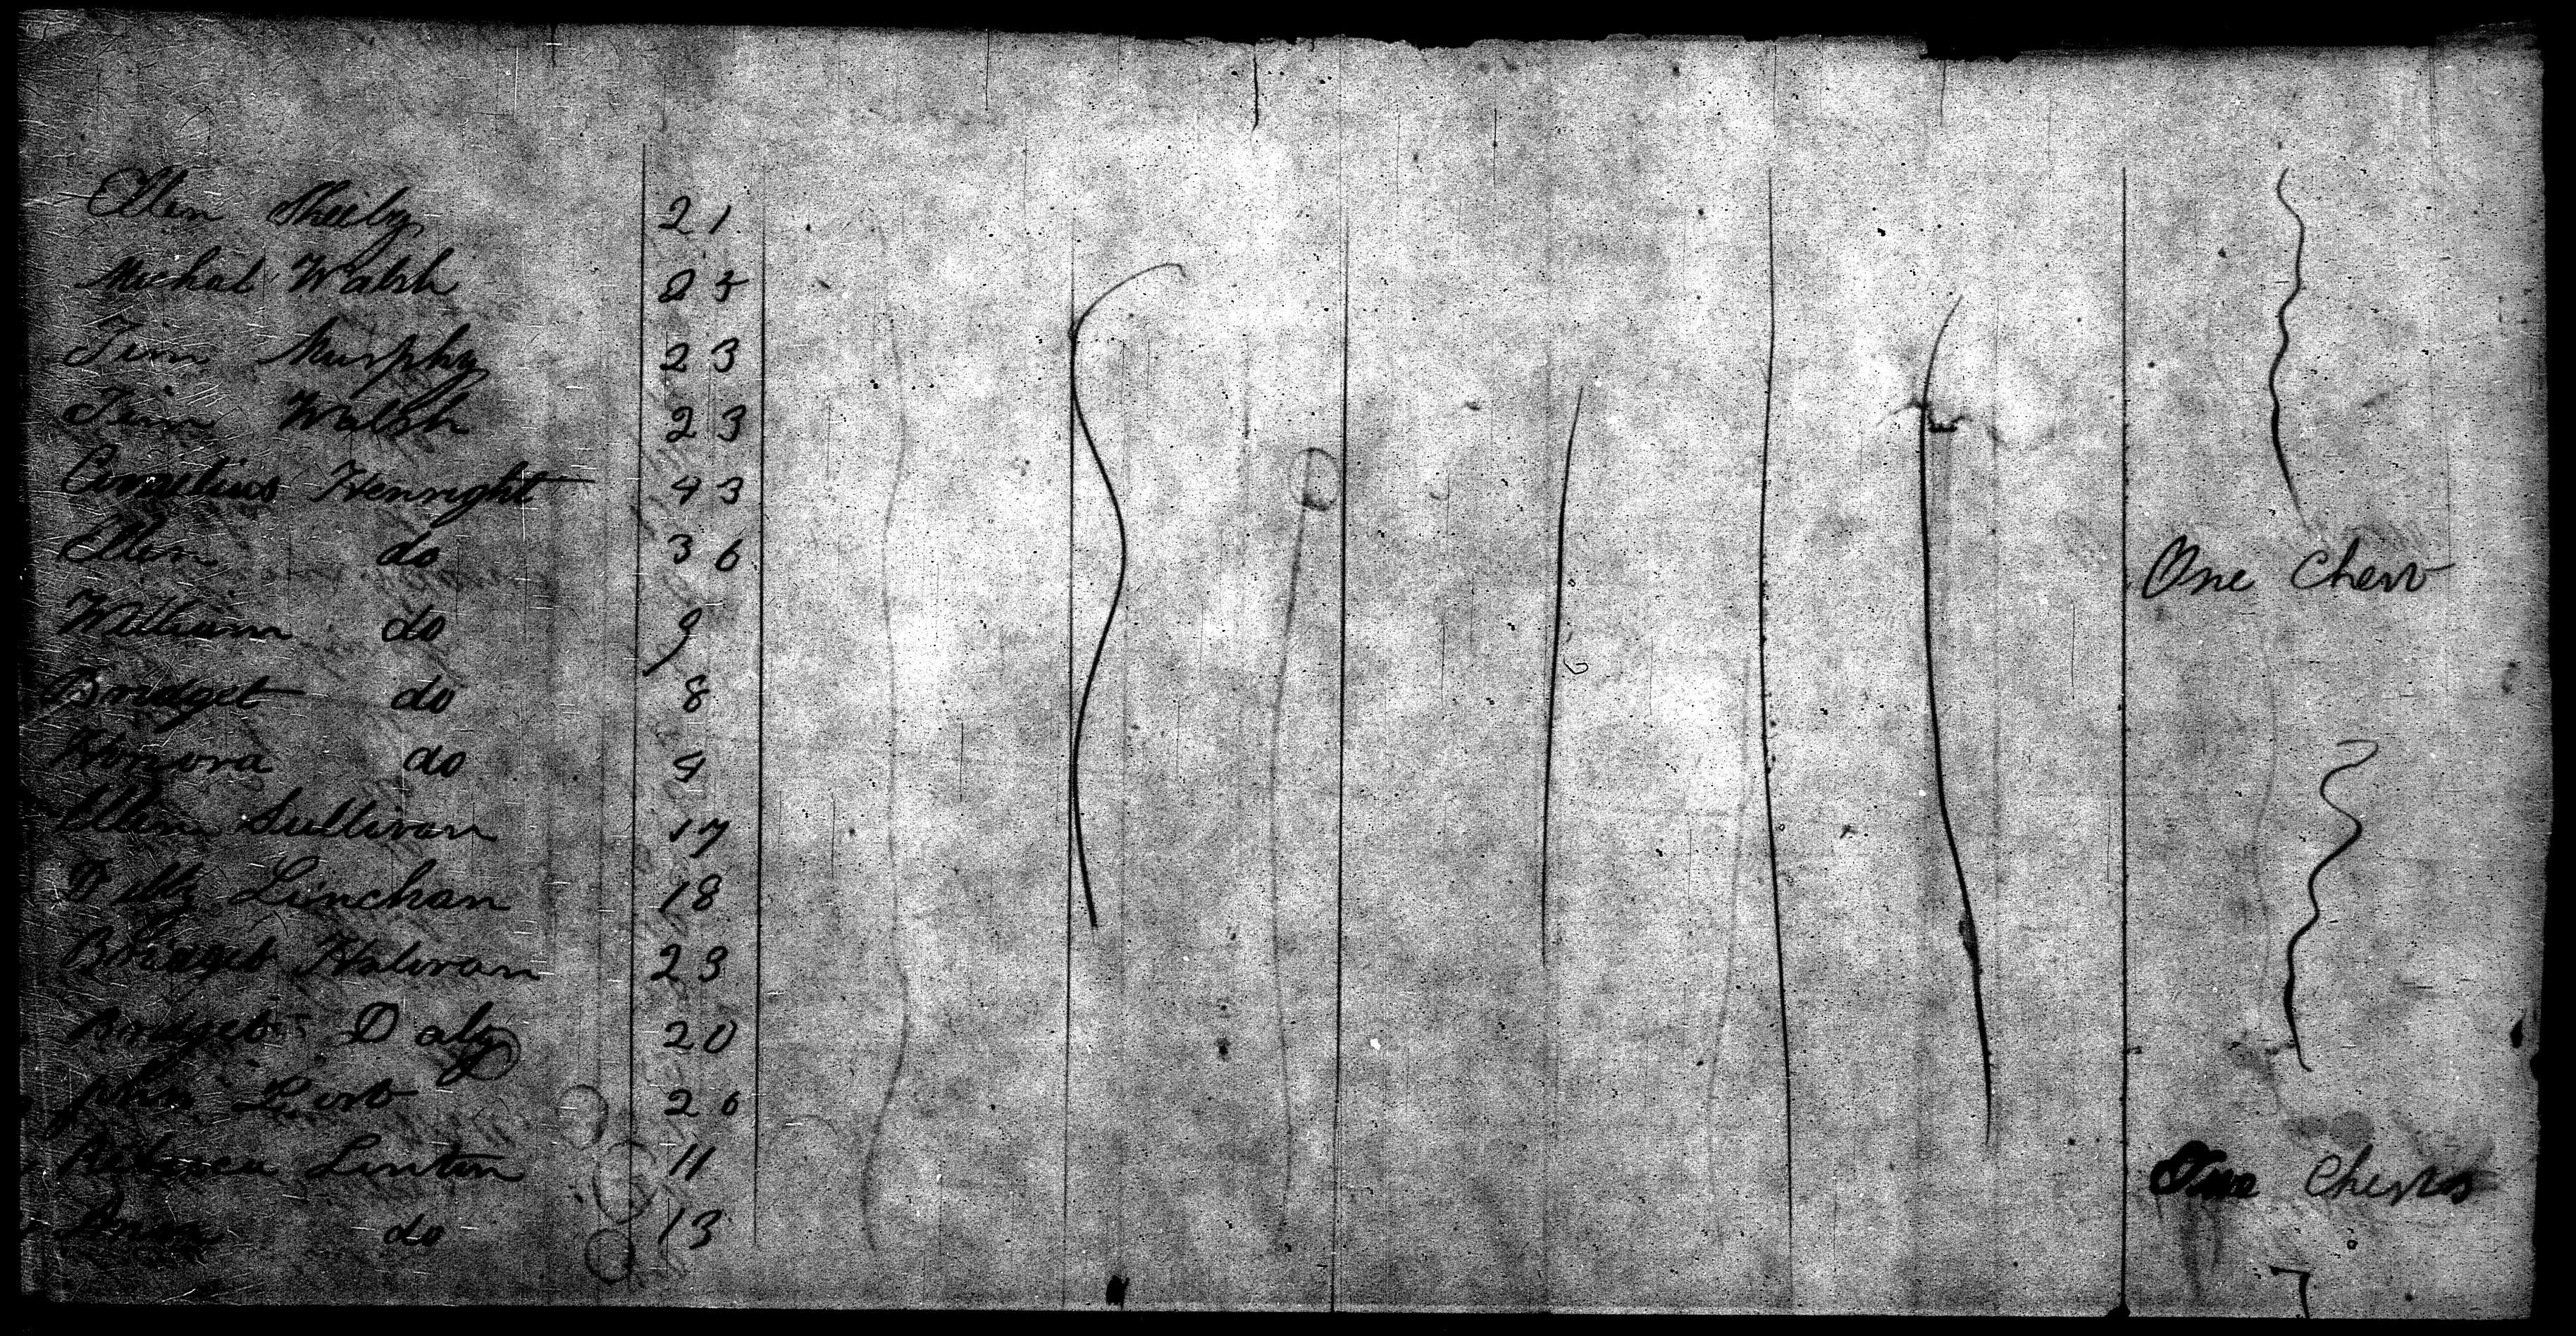 Ellen Sheehy 21
Michal Walsh 25
Tim Murphy 23
Tim Walsh 23
Cornelius Henright 43
Ellen do 36 One Chest
William do 9
Bridget do 8
Honora do 4
Ellen Sullivan 17
Linehan 18
Bridget Halivan 23
Bridget Daly 20
John 26
Rebecca Linton 11 Two Chests
Anna do 13